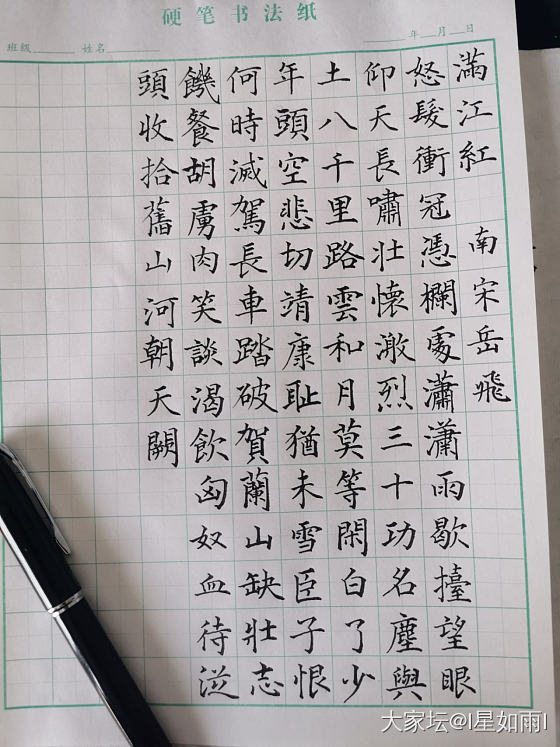 硬笔书法纸
班级 姓名 年 月 日
滿江紅 南宋岳飛
怒髮衝冠憑欄處瀟瀟雨歇擡望眼
仰天長嘯壯懷激烈三十功名塵與
土八千里路雲和月莫等閑白了少
年頭空悲切靖康耻猶未雪臣子恨
何時滅駕長車踏破賀蘭山缺壯志
饑餐胡虜肉笑談渴飲匈奴血待從
頭收拾舊山河朝天闕
大家坛@I星如雨I